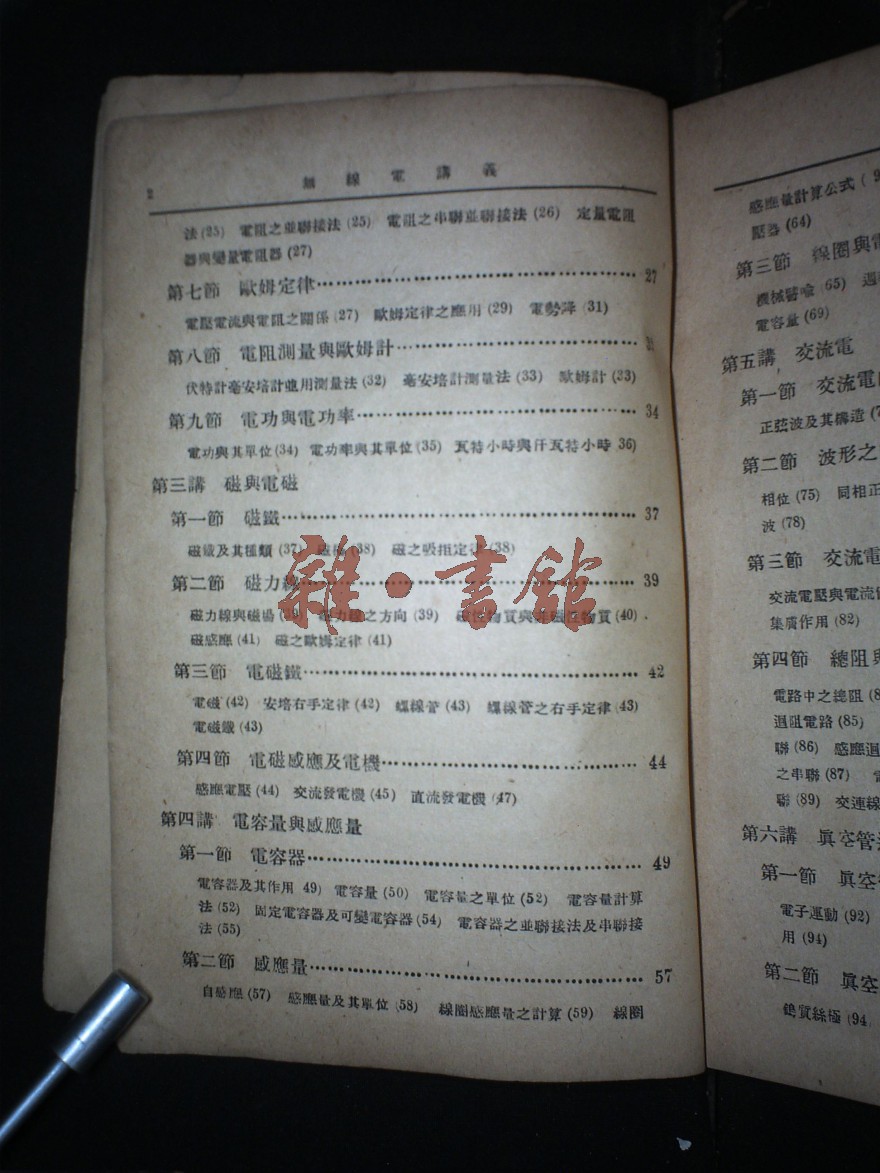 2
無線電講義
法(25) 電阻之並聯接法(25) 電阻之串聯並聯接法(26) 定量電阻
器與變量電阻器(27)
第七節 歐姆定律……27
電壓電流與電阻之關係(27) 歐姆定律之應用(29) 電勢降(31)
第八節 電阻測量與歐姆計……
伏特計毫安培計並用測量法(32) 毫安培計測量法(33) 歐姆計(33)
第九節 電功與電功率……34
電功與其單位(34) 電功率與其單位(35) 瓦特小時與仟瓦特小時 36)
第三講 磁與電磁
第一節 磁鐵……37
磁鐵及其種類(37) (38) 磁之吸拒定律(38)
第二節 磁力線……39
磁力線與磁場(39) 磁力線之方向(39) 磁性物質與非磁性物質(40)
磁感應(41) 磁之歐姆定律(41)
第三節 電磁鐵……42
電磁(42) 安培右手定律(42) 螺線管(43) 螺線管之右手定律(43)
電磁鐵(43)
第四節 電磁感應及電機……44
感應電壓(44) 交流發電機(45) 直流發電機(47)
第四講 電容量與感應量
第一節 電容器……49
電容器及其作用 49) 電容量(50) 電容量之單位(52) 電容量計算
法(52) 固定電容器及可變電容器(54) 電容器之並聯接法及串聯接
法(55)
第二節 感應量……57
自感應(57) 感應量及其單位(58) 線圈感應量之計算(59) 線圈
雜·書館
感應量計算公式(
壓器(64)
第三節 線圈與電
機械 (65)
電容量(69)
第五講 交流電
第一節 交流電
正弦波及其構造(7
第二節 波形之
相位(75) 同相正
波(78)
第三節 交流電
交流電壓與電流
集膚作用(82)
第四節 總阻與
電路中之總阻(8
迴阻電路(85)
聯(86) 感應迴
之串聯(87)
聯(89) 交連線
第六講 眞空管
第一節 眞空
電子運動(92)
用(94)
第二節 眞空
鎢質絲極(94